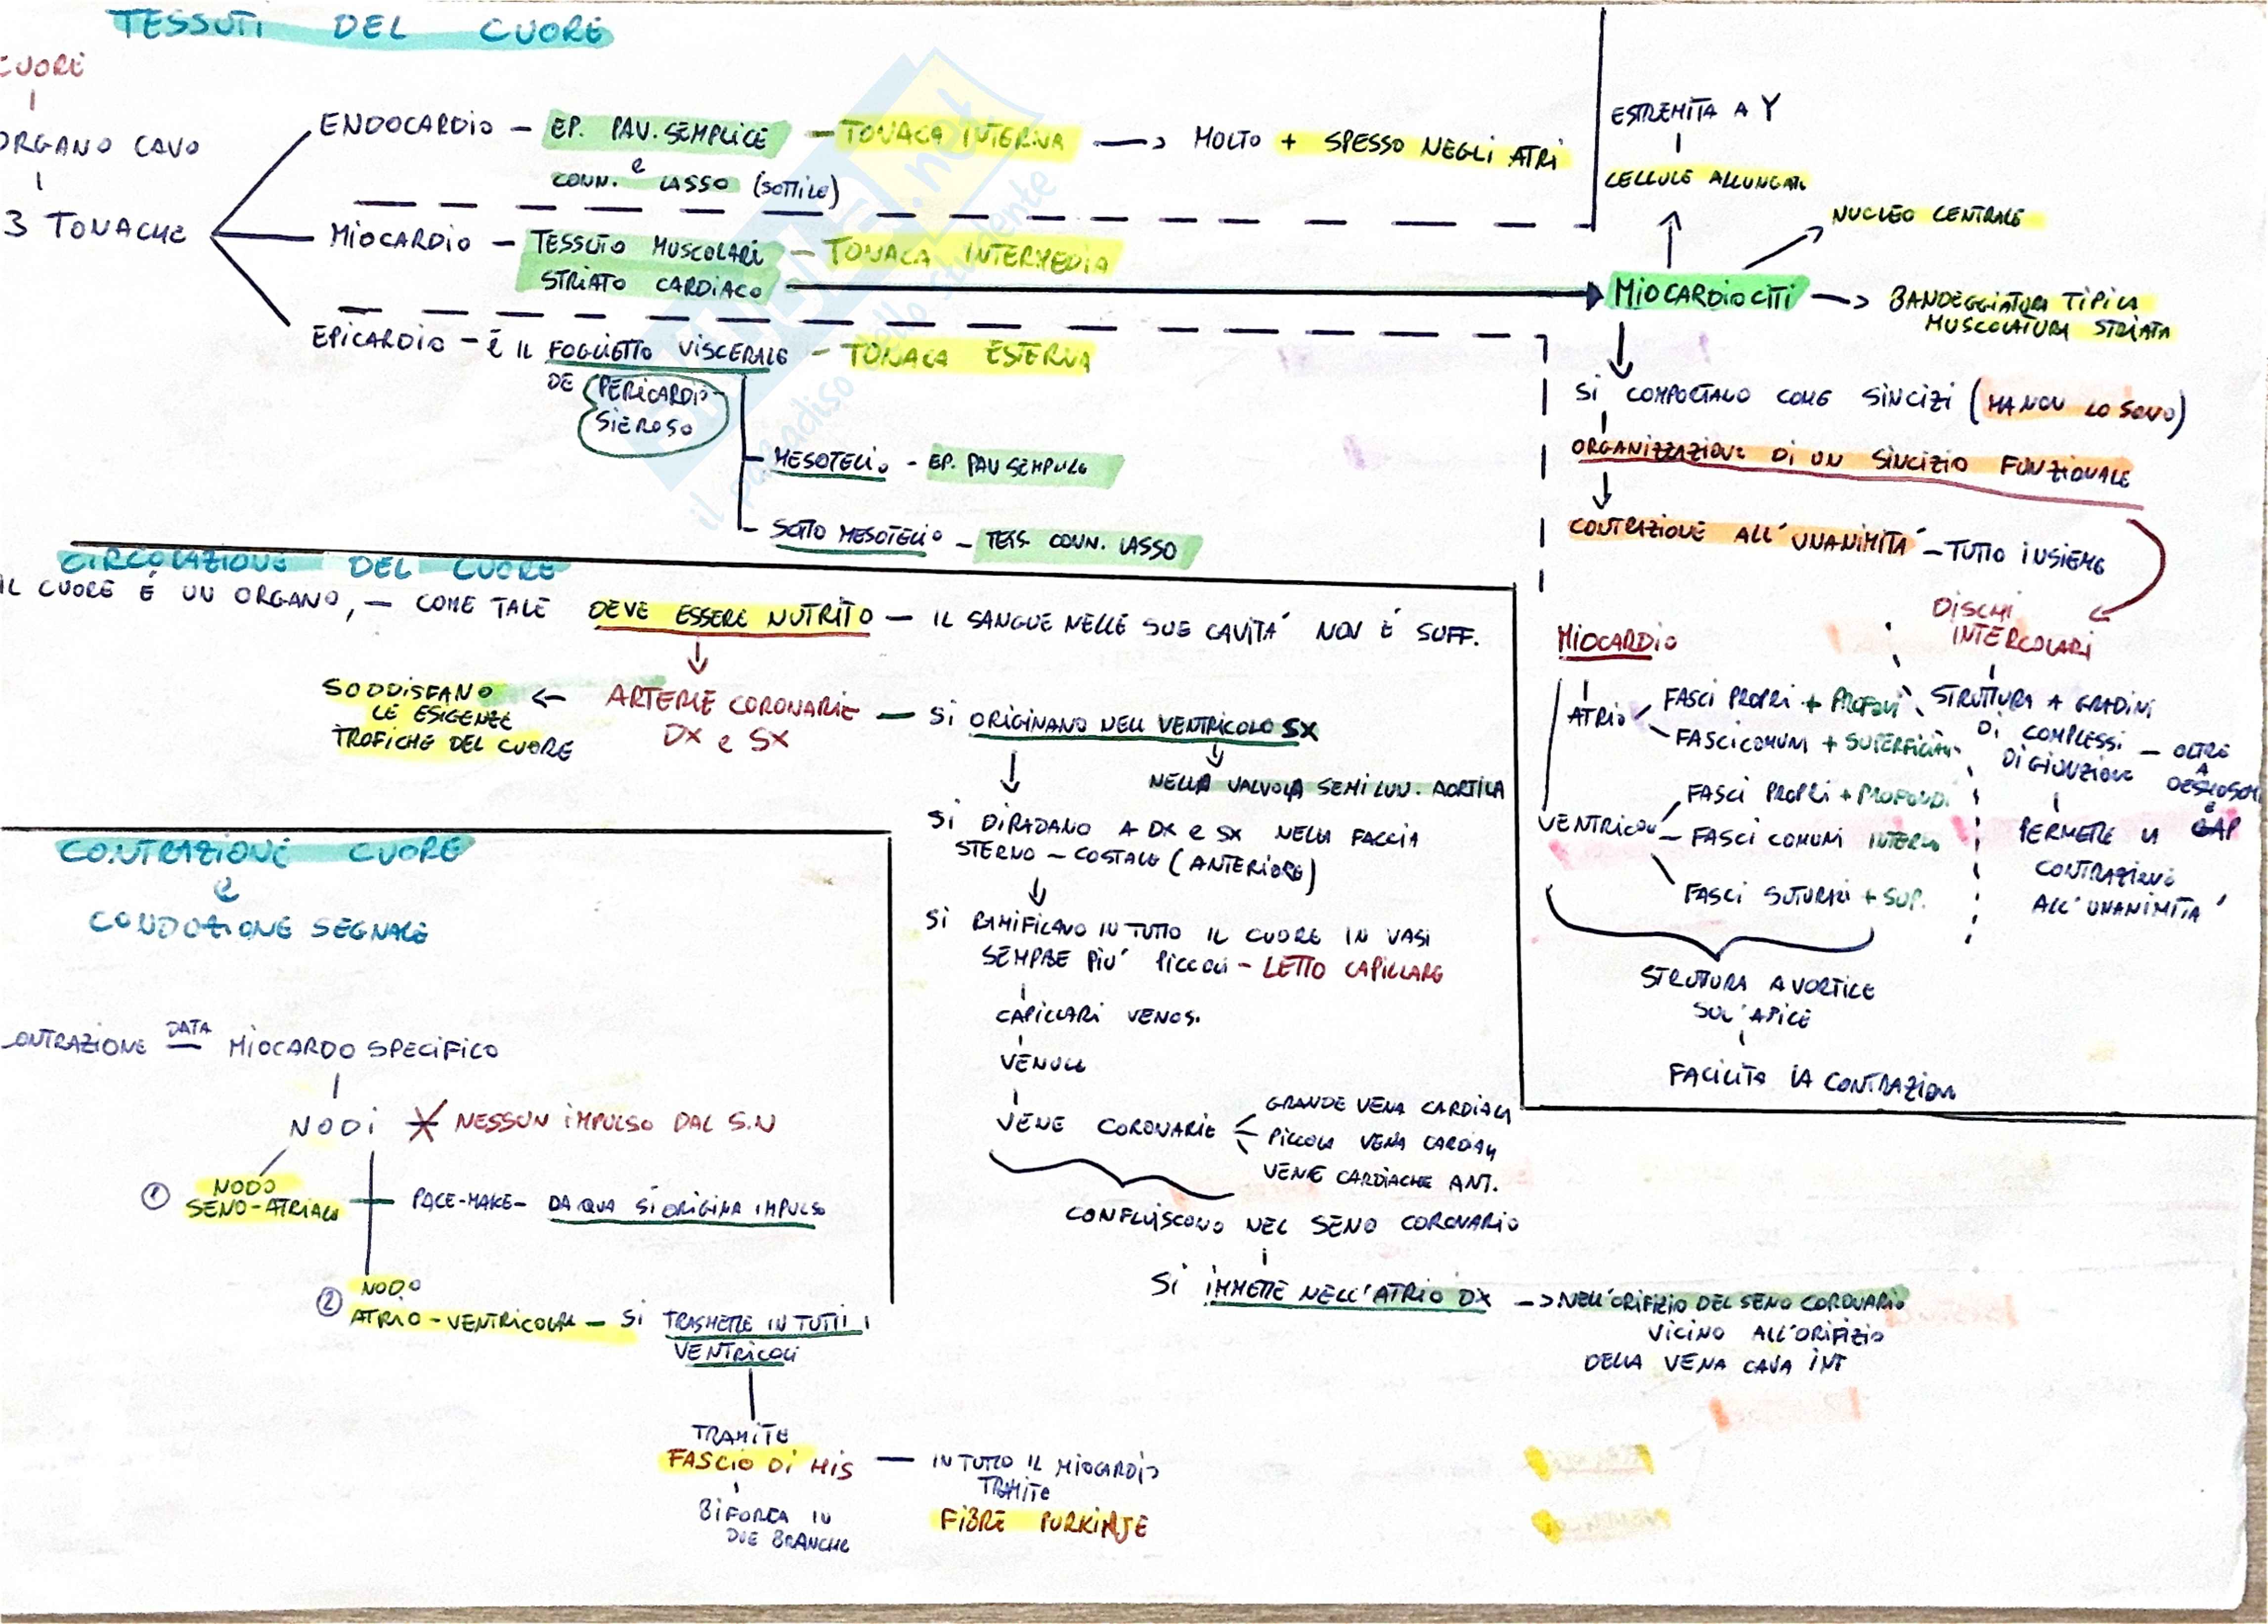 TESSUTI DEL CUORE
CUORE
ORGANO CAVO
3 TONACHE
ENDOCARDIO - EP. PAV. SEMPLICE - TONACA INTERNA -> MOLTO + SPESSO NEGLI ATRI
e
CONN. LASSO (SOTTILE)
MIOCARDIO - TESSUTO MUSCOLARI - TONACA INTERMEDIA
STRIATO CARDIACO
EPICARDIO - È IL FOGLIETTO VISCERALE - TONACA ESTERNA
DE PERICARDIO
SIEROSO
MESOTELIO - EP. PAV SEMPLICE
SOTTO MESOTELIO - TESS. CONN. LASSO
ESTREMITA A Y
CELLULE ALLUNGATE
NUCLEO CENTRALE
MIOCARDIOCITI -> BANDEGGIATURA TIPICA
MUSCOLATURA STRIATA
SI COMPORTANO COME SINCIZI (MA NON LO SONO)
ORGANIZZAZIONE DI UN SINCIZIO FUNZIONALE
CONTRAZIONE ALL'UNANIMITÀ - TUTTO INSIEME
DISCHI
INTERCOLARI
STRUTTURA A GRADINI
DI COMPLESSI
DI GIUNZIONE - OLTRE
A
DESMOSOMI
e
GAP
PERMETTE LA
CONTRAZIONE
ALL'UNANIMITA'
MIOCARDIO
ATRIO
FASCI PROPRI + PROFONDI
FASCI COMUNI + SUPERFICIALI
VENTRICOLI
FASCI PROPRI + PROFONDI
FASCI COMUNI INTERNO
FASCI SUTURALI + SUP.
STRUTTURA A VORTICE
SUL'APICE
FACILITA LA CONTRAZION
CIRCOLAZIONE DEL CUORE
IL CUORE È UN ORGANO, - COME TALE DEVE ESSERE NUTRITO - IL SANGUE NELLE SUE CAVITA' NON È SUFF.
SODDISFANO <- ARTERIE CORONARIE - SI ORIGINANO NELL VENTRICOLO SX
LE ESIGENZE
TROFICHE DEL CUORE
DX e SX
NELLA VALVOLA SEMILUN. AORTICA
SI DIRADANO A DX e SX NELLA FACCIA
STERNO - COSTALE (ANTERIORE)
SI RAMIFICANO IN TUTTO IL CUORE IN VASI
SEMPRE PIU' PICCOLI - LETTO CAPILLARE
CAPILLARI VENOS.
VENULE
VENE CORONARIE
GRANDE VENA CARDIACA
PICCOLA VENA CARDIACA
VENE CARDIACHE ANT.
CONFLUISCONO NEL SENO CORONARIO
SI IMMETTE NELL'ATRIO DX -> NELL'ORIFIZIO DEL SENO CORONARIO
VICINO ALL'ORIFIZIO
DELLA VENA CAVA INF
CONTRAZIONE CUORE
e
CONDUZIONE SEGNALE
CONTRAZIONE DATA MIOCARDO SPECIFICO
NODI * NESSUN IMPULSO DAL S.N
1 NODO
SENO-ATRIALE
PACE-MAKE - DA QUA SI ORIGINA IMPULSO
2 NODO
ATRIO-VENTRICOLARE - SI TRASMETTE IN TUTTI I
VENTRICOLI
TRAMITE
FASCIO DI HIS - IN TUTTO IL MIOCARDIO
TRAMITE
FIBRE PURKINJE
BIFORCA IN
DUE BRANCHE
SKUOLA.net
il paradiso dello studente